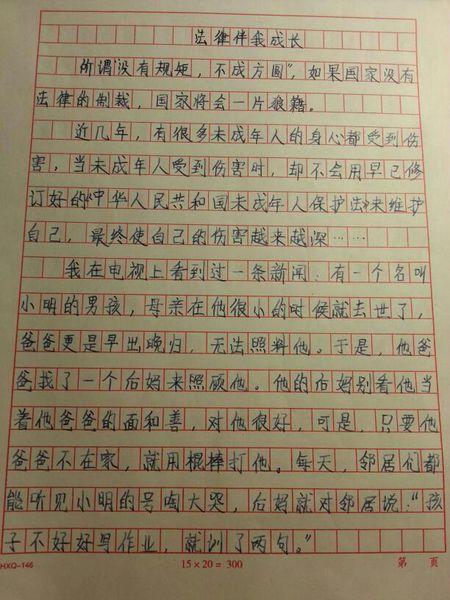 法律伴我成长
所谓“没有规矩，不成方圆”，如果国家没有
法律的制裁，国家将会一片狼籍。
近几年，有很多未成年人的身心都受到伤
害，当未成年人受到伤害时，却不会用早已修
订好的“中华人民共和国未成年人保护法”来维护
自己，最终使自己的伤害越来越深……
我在电视上看到过一条新闻：有一个名叫
小明的男孩，母亲在他很小的时候就去世了，
爸爸更是早出晚归，无法照料他。于是，他爸
爸找了一个后妈来照顾他。他的后妈别看他当
着他爸爸的面和善，对他很好，可是，只要他
爸爸不在家，就用棍棒打他。每天，邻居们都
能听见小明的号啕大哭，后妈就对邻居说：“孩
子不好好写作业，就训了两句。”
HXQ-146 15×20=300 第 页